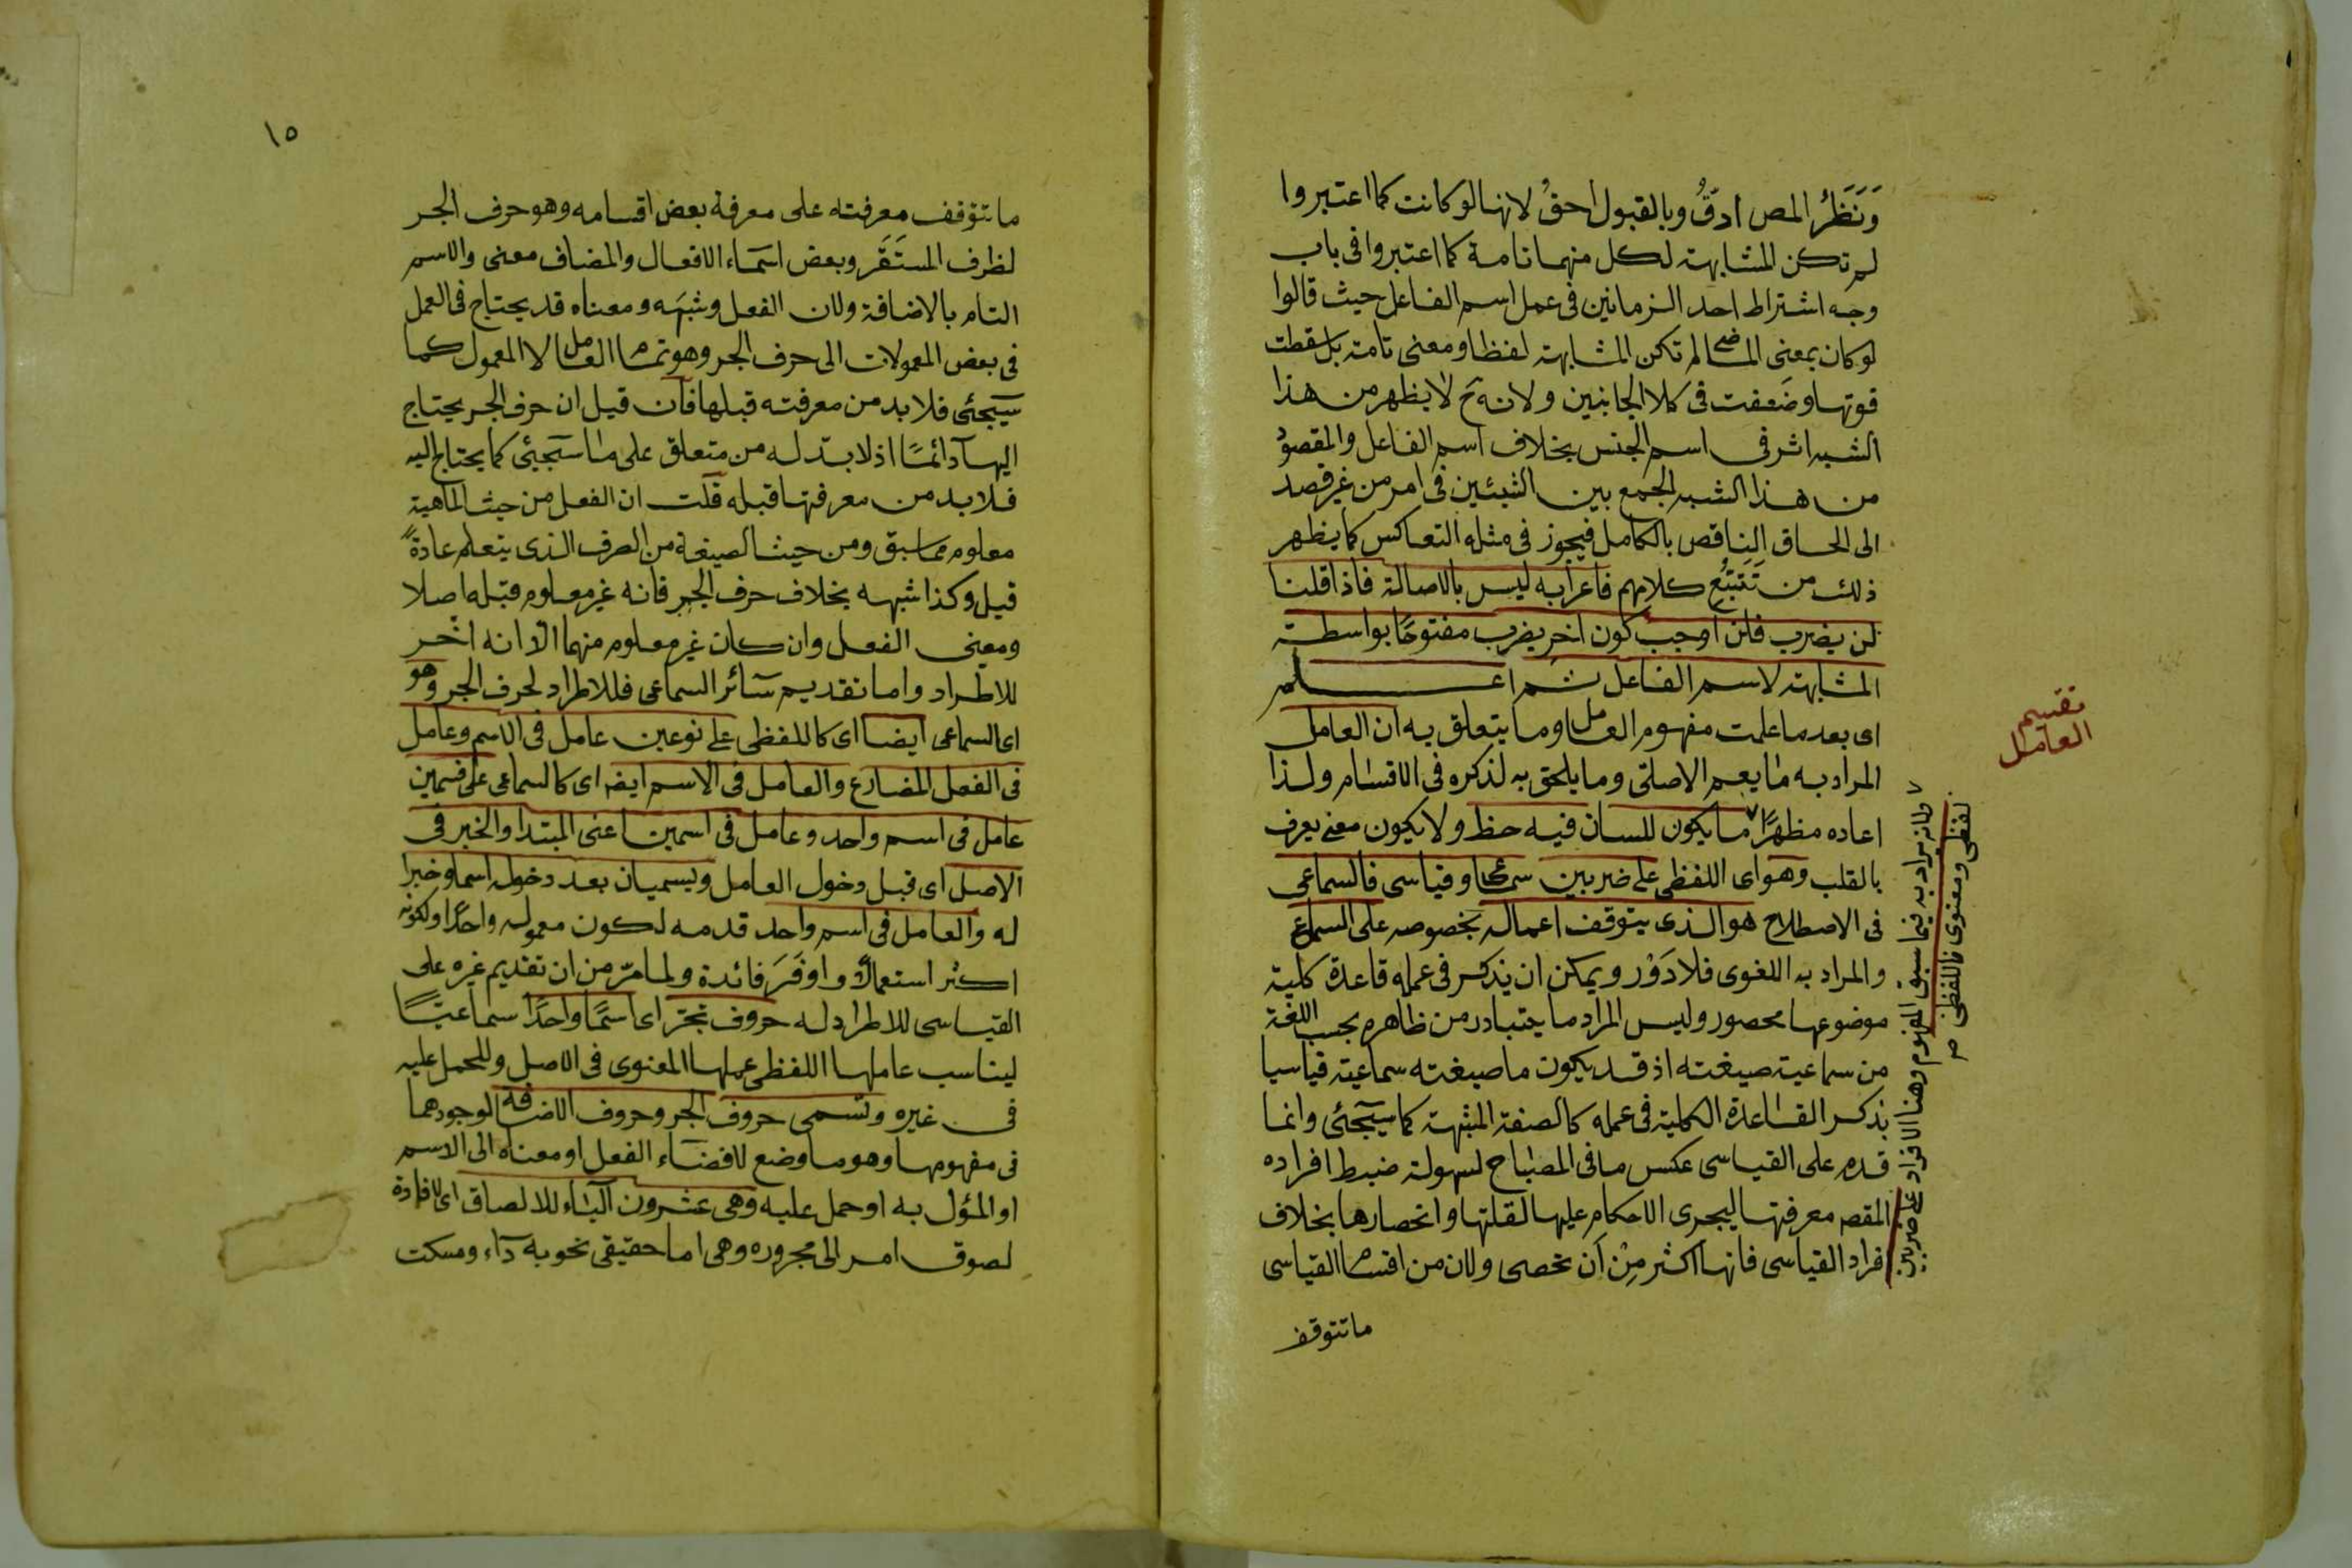 وَنَظَرُ المص ادقُّ وبالقبول احقُ لانها لو كانت كما اعتبروا
لم تكن المشابهة لكل منهما تامة كما اعتبروا فى باب
وجه اشتراط احد الزمانين فى عمل اسم الفاعل حيث قالوا
لو كان بمعنى الماضى لم تكن المشابهة لفظا ومعنى تامة بل سقطت
قوتها وضعفت فى كلا الجانبين ولانه ح لا يظهر من هذا
الشبه اثر فى اسم الجنس بخلاف اسم الفاعل والمقصود
من هذا الشبه الجمع بين الشيئين فى امر من غير قصد
الى الحاق الناقص بالكامل فيجوز فى مثله التعاكس كما يظهر
ذلك من تَتَبُّعِ كلامهم فاعرابه ليس بالاصالة فاذا قلنا
لن يضرب فلن اوجب كون اخر يضرب مفتوحا بواسطة
المشابهة لاسم الفاعل ثم اعلم
اى بعد ما علمت مفهوم العامل وما يتعلق به ان العامل
المراد به ما يعم الاصلى وما يلحق به لذكره فى الاقسام ولذا
اعاده مظهرًا ما يكون للسان فيه حظ ولا يكون معنى يعرف
بالقلب وهو اى اللفظى على ضربين سماعى وقياسى فالسماعى
فى الاصطلاح هو الذى يتوقف اعماله بخصوصه على السماع
والمراد به اللغوى فلا دَوْر ويمكن ان يذكر فى عمله قاعدة كلية
موضوعها محصور وليس المراد ما يتبادر من ظاهره بحسب اللغة
من سماعية صيغته اذ قد يكون ما صيغته سماعية قياسيا
بذكر القاعدة الكلية فى عمله كالصفة المشبهة كما سيجئى وانما
قدم على القياسى عكس ما فى المصباح لسهولة ضبط افراده
المقصه معرفتها ليجرى الاحكام عليها لقلتها وانحصارها بخلاف
افراد القياسى فانها اكثر مِنْ اَن تحصى ولان من اقسام القياسى
ما تتوقف
تقسيم
العامل
لفظى ومعنوى فاللفظى صح
فانه يراد به فيما سبق المفهوم وهنا الافراد على ضربين
١٥
ما تتوقف معرفته على معرفة بعض اقسامه وهو حرف الجر
لظرف المستَقَر وبعض اسماء الافعال والمضاف معنى والاسم
التام بالاضافة ولان الفعل وشبهه ومعناه قد يحتاج فى العمل
فى بعض المعمولات الى حرف الجر وهو تمام العامل لا المعمول كما
سيجئى فلا بد من معرفته قبلها فان قيل ان حرف الجر يحتاج
اليها دائمًا اذ لا بد له من متعلق على ما سيجئى كما يحتاج اليه
فلا بد من معرفتها قبله قلت ان الفعل من حيث الماهية
معلوم مما سبق ومن حيث الصيغة من الصرف الذى يتعلم عادةً
قبل وكذا شبهه بخلاف حرف الجر فانه غير معلوم قبله اصلا
ومعنى الفعل وان كان غير معلوم منهما الا انه اخر
للاطراد واما تقديم سائر السماعى فللاطراد لحرف الجر وهو
اى السماعى ايضا اى كاللفظى على نوعين عامل فى الاسم وعامل
فى الفعل المضارع والعامل فى الاسم ايضه اى كالسماعى على قسمين
عامل فى اسم واحد وعامل فى اسمين اعنى المبتدا والخبر فى
الاصل اى قبل دخول العامل ويسميان بعد دخوله اسما وخبرا
له والعامل فى اسم واحد قدمه لكون معموله واحدًا ولكونه
اكثر استعمالًا واوفَرَ فائدة ولما مرّ من ان تقديم غيره على
القياسى للاطراد له حروف تجرّ اى اسمًا واحدًا سماعيًّا
ليناسب عاملها اللفظى عملها المعنوى فى الاصل وللحمل عليه
فى غيره وتسمى حروف الجر وحروف الاضافة لوجودهما
فى مفهومها وهو ما وضع لافضاء الفعل او معناه الى الاسم
او المؤل به او حمل عليه وهى عشرون الباء للالصاق اى لافادة
لصوق امر الى مجروره وهى اما حقيقى نحو به داء ومسكت